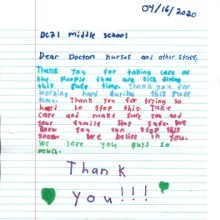 04/16/2020
Dear Doctors nurses and other staff,
Thank you for taking care of
the people that are sick during
this time. Thank you for
working hard during this
time. Thank you for trying so
hard to stop this. Take
care and make sure you and
your family stay safe. We
know you can stop this
soon. We believe in you.
We love you guys so
much.
Thank
you!!!